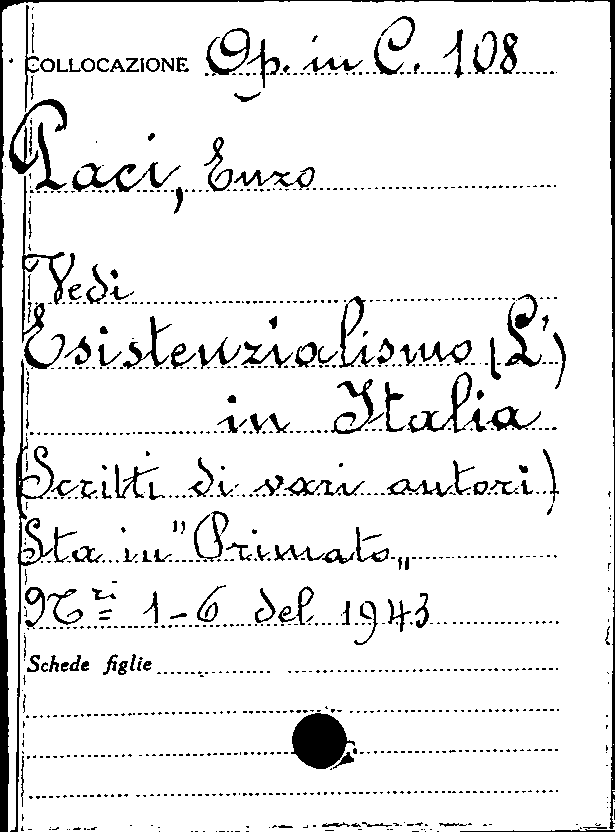 COLLOCAZIONE Op. in C. 108
Paci, Enzo
Vedi
Esistenzialismo (L')
in Italia
(Scritti di vari autori)
Sta in "Primato„
Nri 1-6 del 1943
Schede figlie